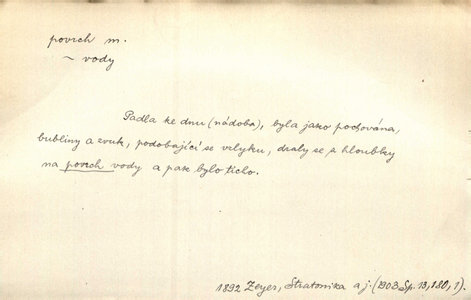 povrch m.
~ vody
Padla ke dnu (nádoba), byla jako pochována,
bubliny a zvuk, podobající se vzlyku, draly se z hloubky
na povrch vody a pak bylo ticho.
1892 Zeyer, Stratonika a j. (1903 Sp. 13, 180, 1).